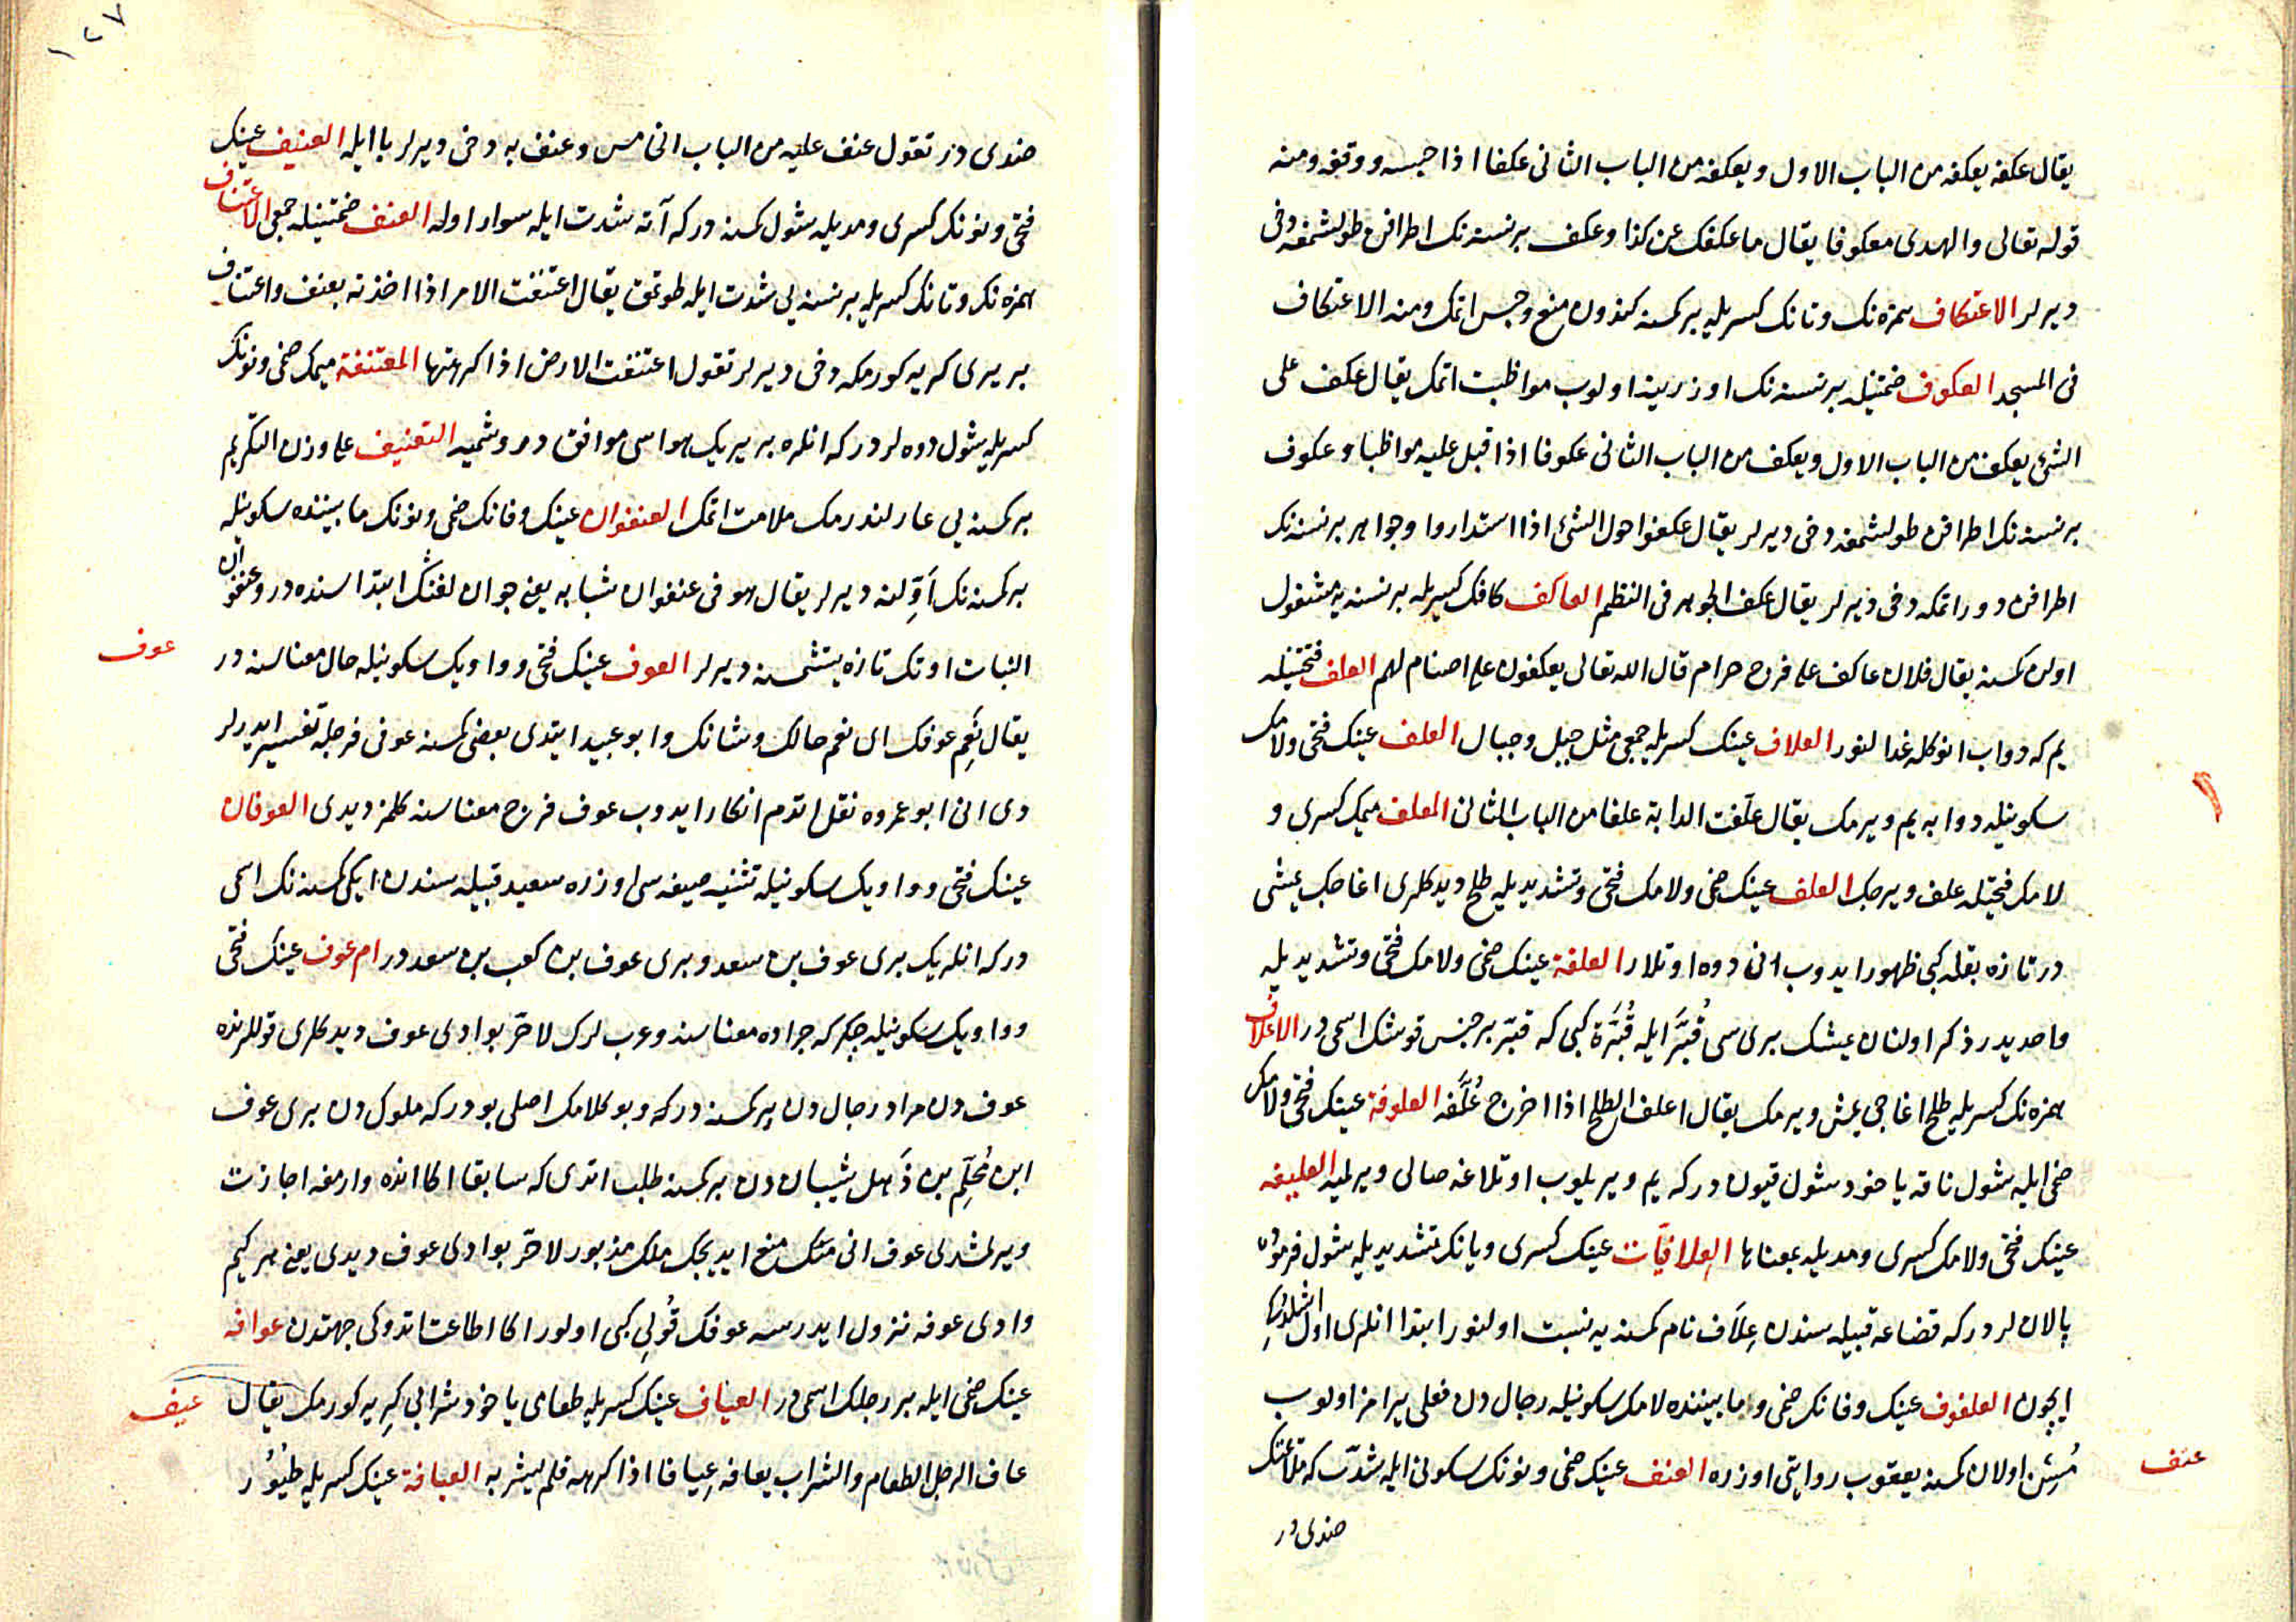 يقال عكفه يعكفه من الباب الاول ويعكفه من الباب الثانى عكفا اذا حبسه ووقفه ومنه
قوله تعالى والهدى معكوفا يقال ما عكفك عن كذا وعكف بر نسنه نك اطرافن طولشمغه دخى
ديرلر الاعتكاف همزه نك وتانك كسريله بر كمسنه كندون منع وحبس اتمك ومنه الاعتكاف
فى المسجد العكوف ضمتيله بر نسنه نك اوزرينه اولوب مواظبت اتمك يقال عكف على
الشئ يعكف من الباب الاول ويعكف من الباب الثانى عكوفا اذا اقبل عليه مواظبا وعكوف
بر نسنه نك اطرافن طولشمغه دخى ديرلر يقال عكفوا حول الشئ اذا استداروا وجواهر بر نسنه نك
اطرافن دور اتمكه دخى ديرلر يقال عكف الجوهر فى النظم العاكف كافك كسريله بر نسنه يه مشغول
اولن كمسنه يقال فلان عاكف على فرج حرام قال الله تعالى يعكفون على اصنام لهم العلف فتحتيله
يم كه دواب انوكله غدالنور العلاف عينك كسريله جمعى مثل جبل وجبال العلف عينك فتحى ولامك
سكونيله دوابه يم ويرمك يقال علفت الدابة علفا من الباب الثانى المعلف ميمك كسرى و
لامك فتحيله علف ويرجك العلف عينك ضمى ولامك فتحى وتشديديله طلح ديدكلرى اغاجك يمشى
در تازه بقله كبى ظهور ايدوب انى دوه اوتلار العلفة عينك ضمى ولامك فتحى وتشديديله
واحديدر ذكر اولنان يمشك بريسى قُبَّر ايله قُبَّرة كبى كه قبّر بر جنس قوشك اسمى در الاعلاف
همزه نك كسريله طلح اغاجى يمش ويرمك يقال اعلف الطلح اذا اخرج عُلَّفه العلوفة عينك فتحى ولامك
ضمى ايله شول ناقه ياخود شول قيون دركه يم ويريلوب اوتلاغه صالى ويرلميه العليفه
عينك فتحى ولامك كسرى ومديله بمعناها العلافيّات عينك كسرى ويانك تشديديله شول
پالان لر دركه قضاعه قبيله سندن عِلاف نام كمسنه يه نسبت اولنور ابتدا انلرى اول اشلدوكى
ايچون العلفوف عينك وفانك ضمى وما بيننده لامك سكونيله رجال دن فعلى يرامز اولوب
مُسِنّ اولان كمسنه يعقوب روايتى اوزره العنف عينك ضمى ونونك سكونى ايله شدّت كه ملايمتك
عنف
ضدى در
١٢٧
ضدى در تقول عنف عليه من الباب الخامس وعنف به دخى ديرلر با ايله العنيف عينك
فتحى ونونك كسرى ومديله شول كمسنه دركه آته شدت ايله سوار اوله العنف ضمتيله جمعى الاعتناف
همزه نك وتانك كسريله بر نسنه يى شدت ايله طوتمق يقال اعتنفت الامر اذا اخذته بعنف واعتناف
بر يرى كريه كورمكه دخى ديرلر تقول اعتنفت الارض اذا كرهتها المعتنفة ميمك ضمى ونونك
كسريله شول دوه لر دركه انلره بر يريك هواسى موافق دوشميه التعنيف على وزن التكريم
بر كمسنه يى عارلندرمك ملامت اتمك العنفوان عينك وفانك ضمى ونونك ما بيننده سكونيله
بر كمسنه نك اَوّلنه ديرلر يقال هو فى عنفوان شبابه يعنى جوان لغنك ابتداسنده در وعنفوان
النبات اوتك تازه يتشمسنه ديرلر العوف عينك فتحى وواويك سكونيله حال معناسنه در
عوف
يقال نَعِم عوفك اى نعم حالك وشانك وابو عبيد ايتدى بعضى كمسنه عوفى فرجله تفسير ايدرلر
دى انى ابو عمروه نقل اتدم انكار ايدوب عوف فرج معناسنه كلمز ديدى العوفان
عينك فتحى وواويك سكونيله تثنيه صيغه سى اوزره سعيد قبيله سندن ايكى كمسنه نك اسمى
دركه انلريك برى عوف بن سعد وبرى عوف بن كعب بن سعد در ام عوف عينك فتحى
وواويك سكونيله چكركه جراده معناسنه وعرب لرك لا حرّ بوادى عوف ديدكلرى قوللرنده
عوف دن مراد رجال دن بر كمسنه دركه وبو كلامك اصلى بودركه ملوك دن برى عوف
ابن مُحلِّم بن ذُهل شيبان دن بر كمسنه طلب اتدى كه سابقا اكا انده وارمغه اجازت
ويرلمشدى عوف انى منع ايديجك ملك مزبور لا حرّ بوادى عوف ديدى يعنى هر كيم
وادى عوفه نزول ايدرسه عوفك قولى كبى اولور اكا اطاعت اتدوكى جهتدن عوافه
عينك ضمى ايله بر رجلك اسمى در العياف عينك كسريله طعامى ياخود شرابى كريه كورمك يقال
عيف
عاف الرجل الطعام والشراب يعافه عِيافا اذا كرهه فلم يشربه العيافة عينك كسريله طيور